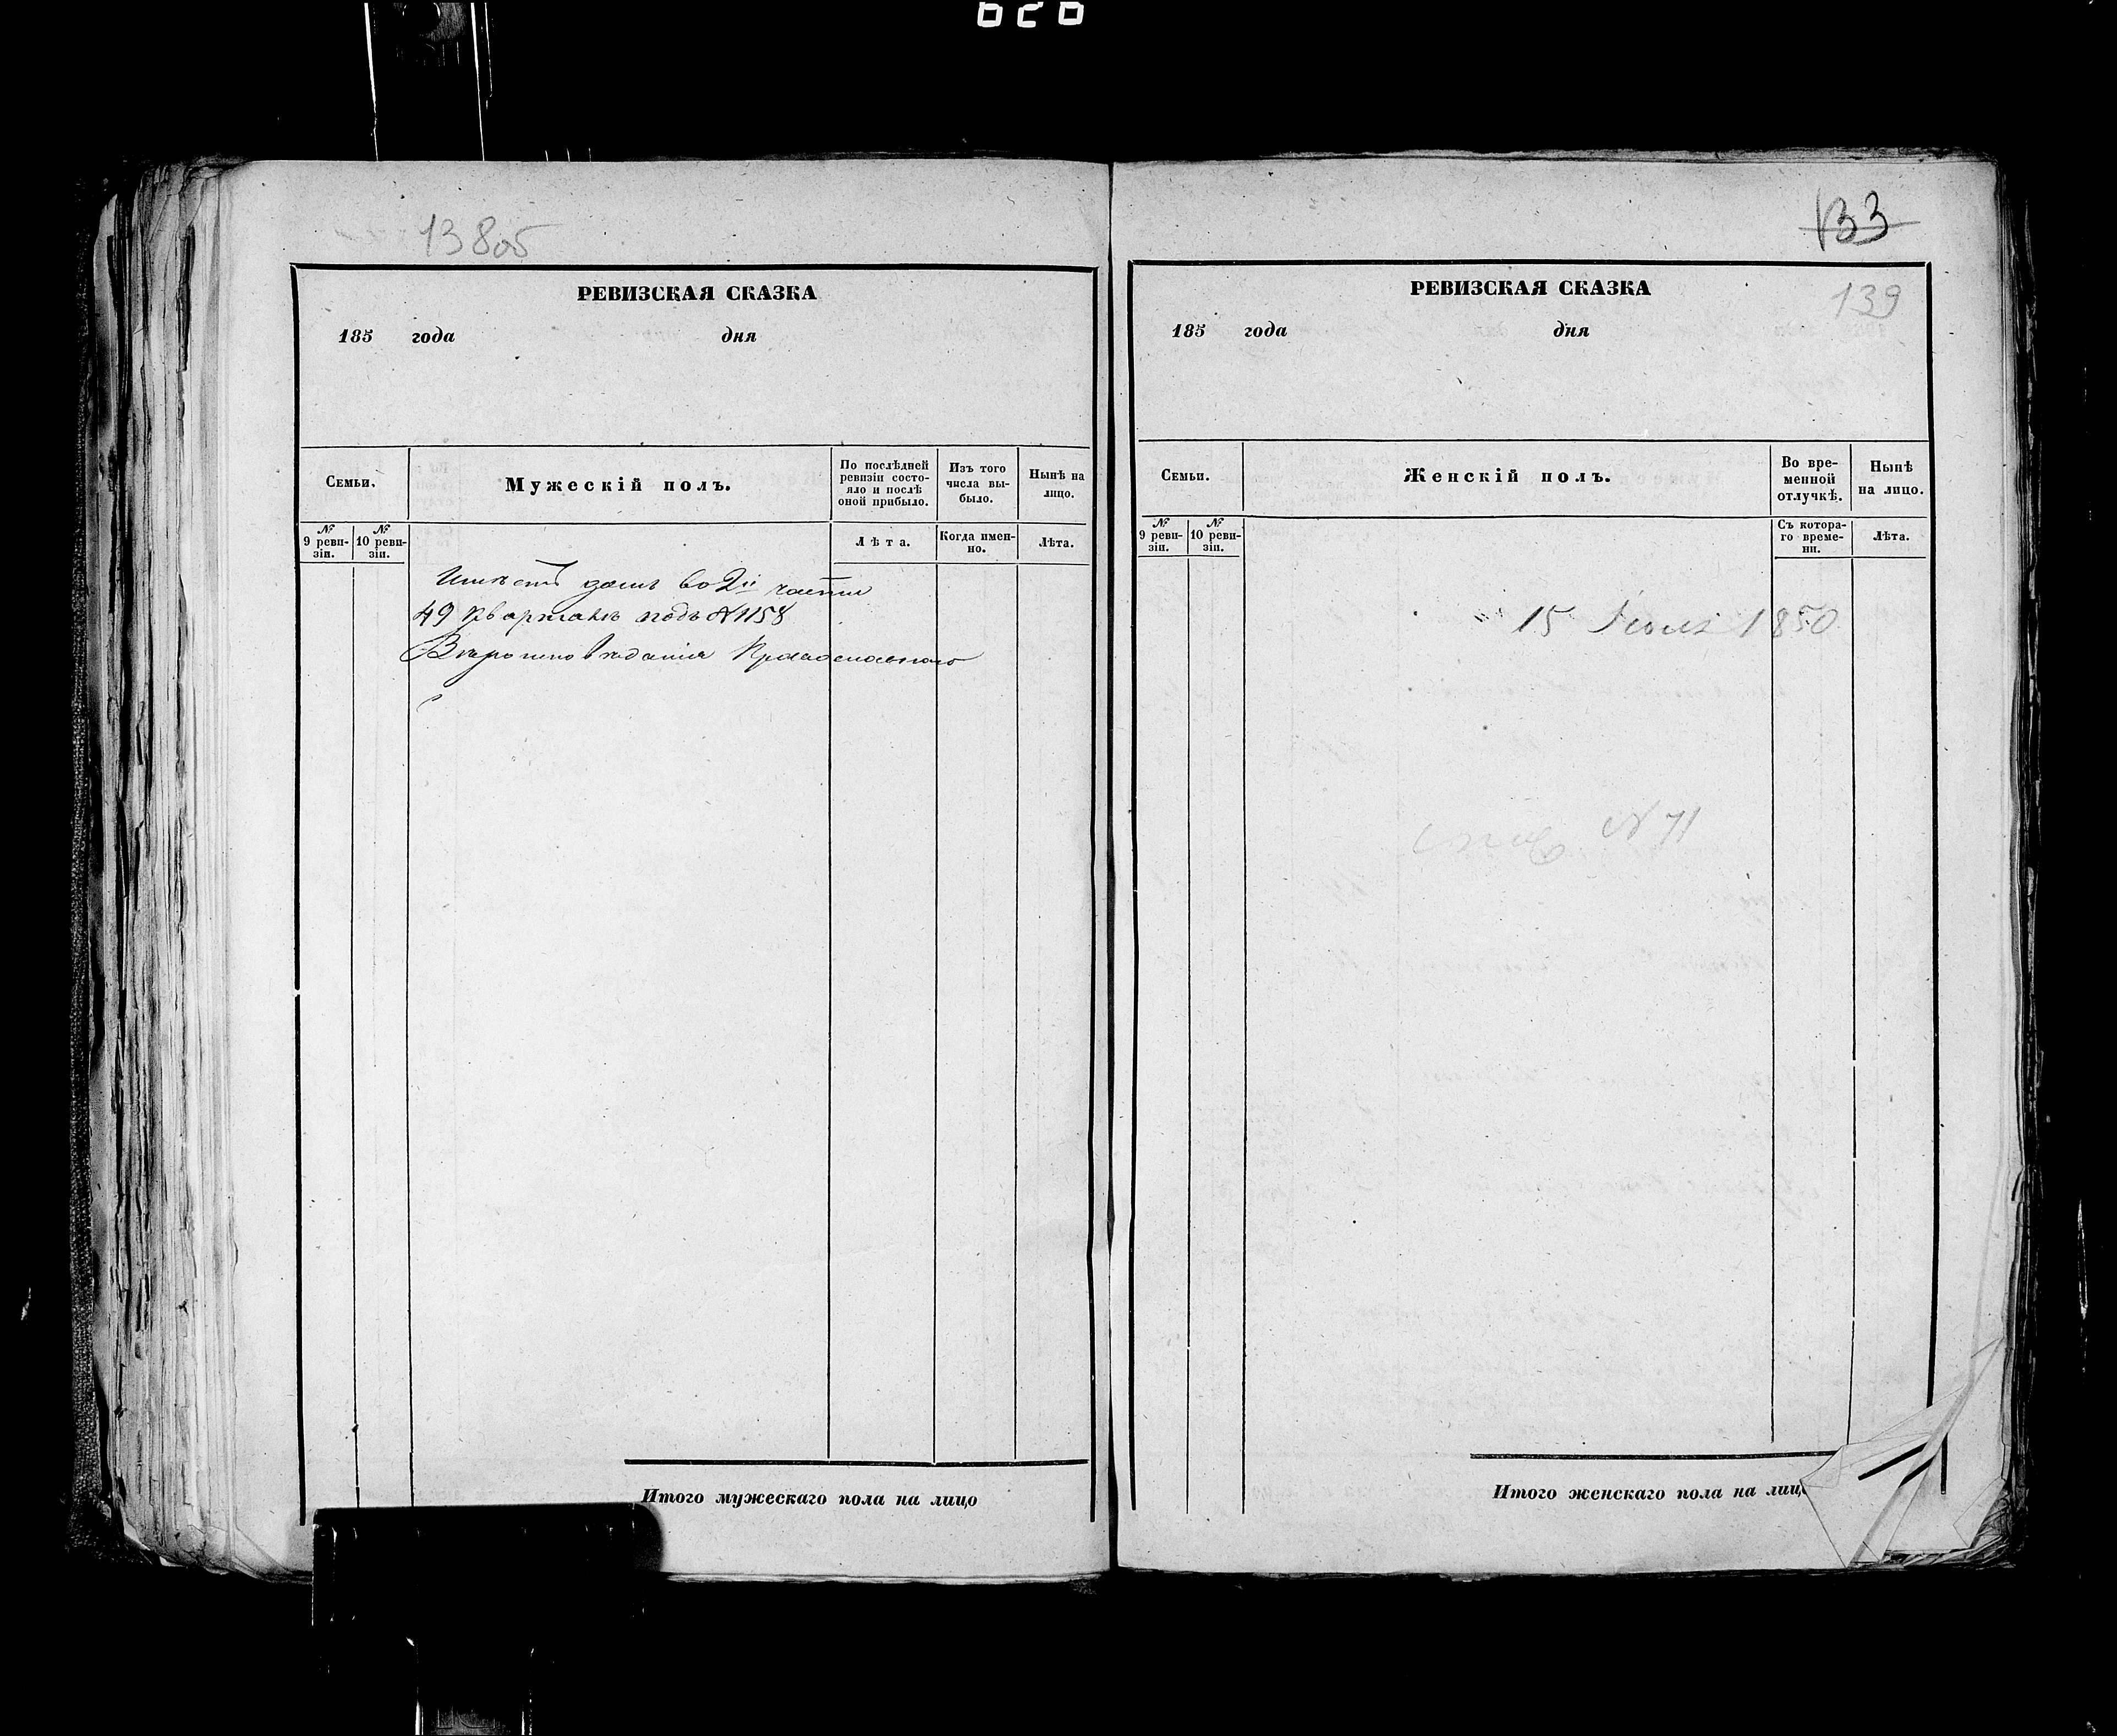 626
13805
РЕВИЗСКАЯ СКАЗКА
185 года дня
Семьи.
Мужескій полъ.
По послѣдней ревизіи состояло и послѣ оной прибыло.
Изъ того числа выбыло.
Нынѣ на лицо.
№ 9 ревизіи.
№ 10 ревизіи.
Лѣта.
Когда именно.
Лѣта.
Имѣетъ домъ во 2й части
49 кварталѣ подъ № 1158
Итого мужескаго пола на лицо
133
139
РЕВИЗСКАЯ СКАЗКА
185 года дня
Семьи.
Женскій полъ.
Во временной отлучкѣ.
Нынѣ на лицо.
№ 9 ревизіи.
№ 10 ревизіи.
Съ котораго времени.
Лѣта.
15 1850
№ 71
Итого женскаго пола на лиц